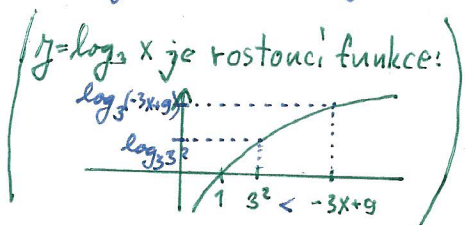 y=log₃ x je rostoucí funkce:
log₃(-3x+9)
log₃3²
1 3² < -3x+9